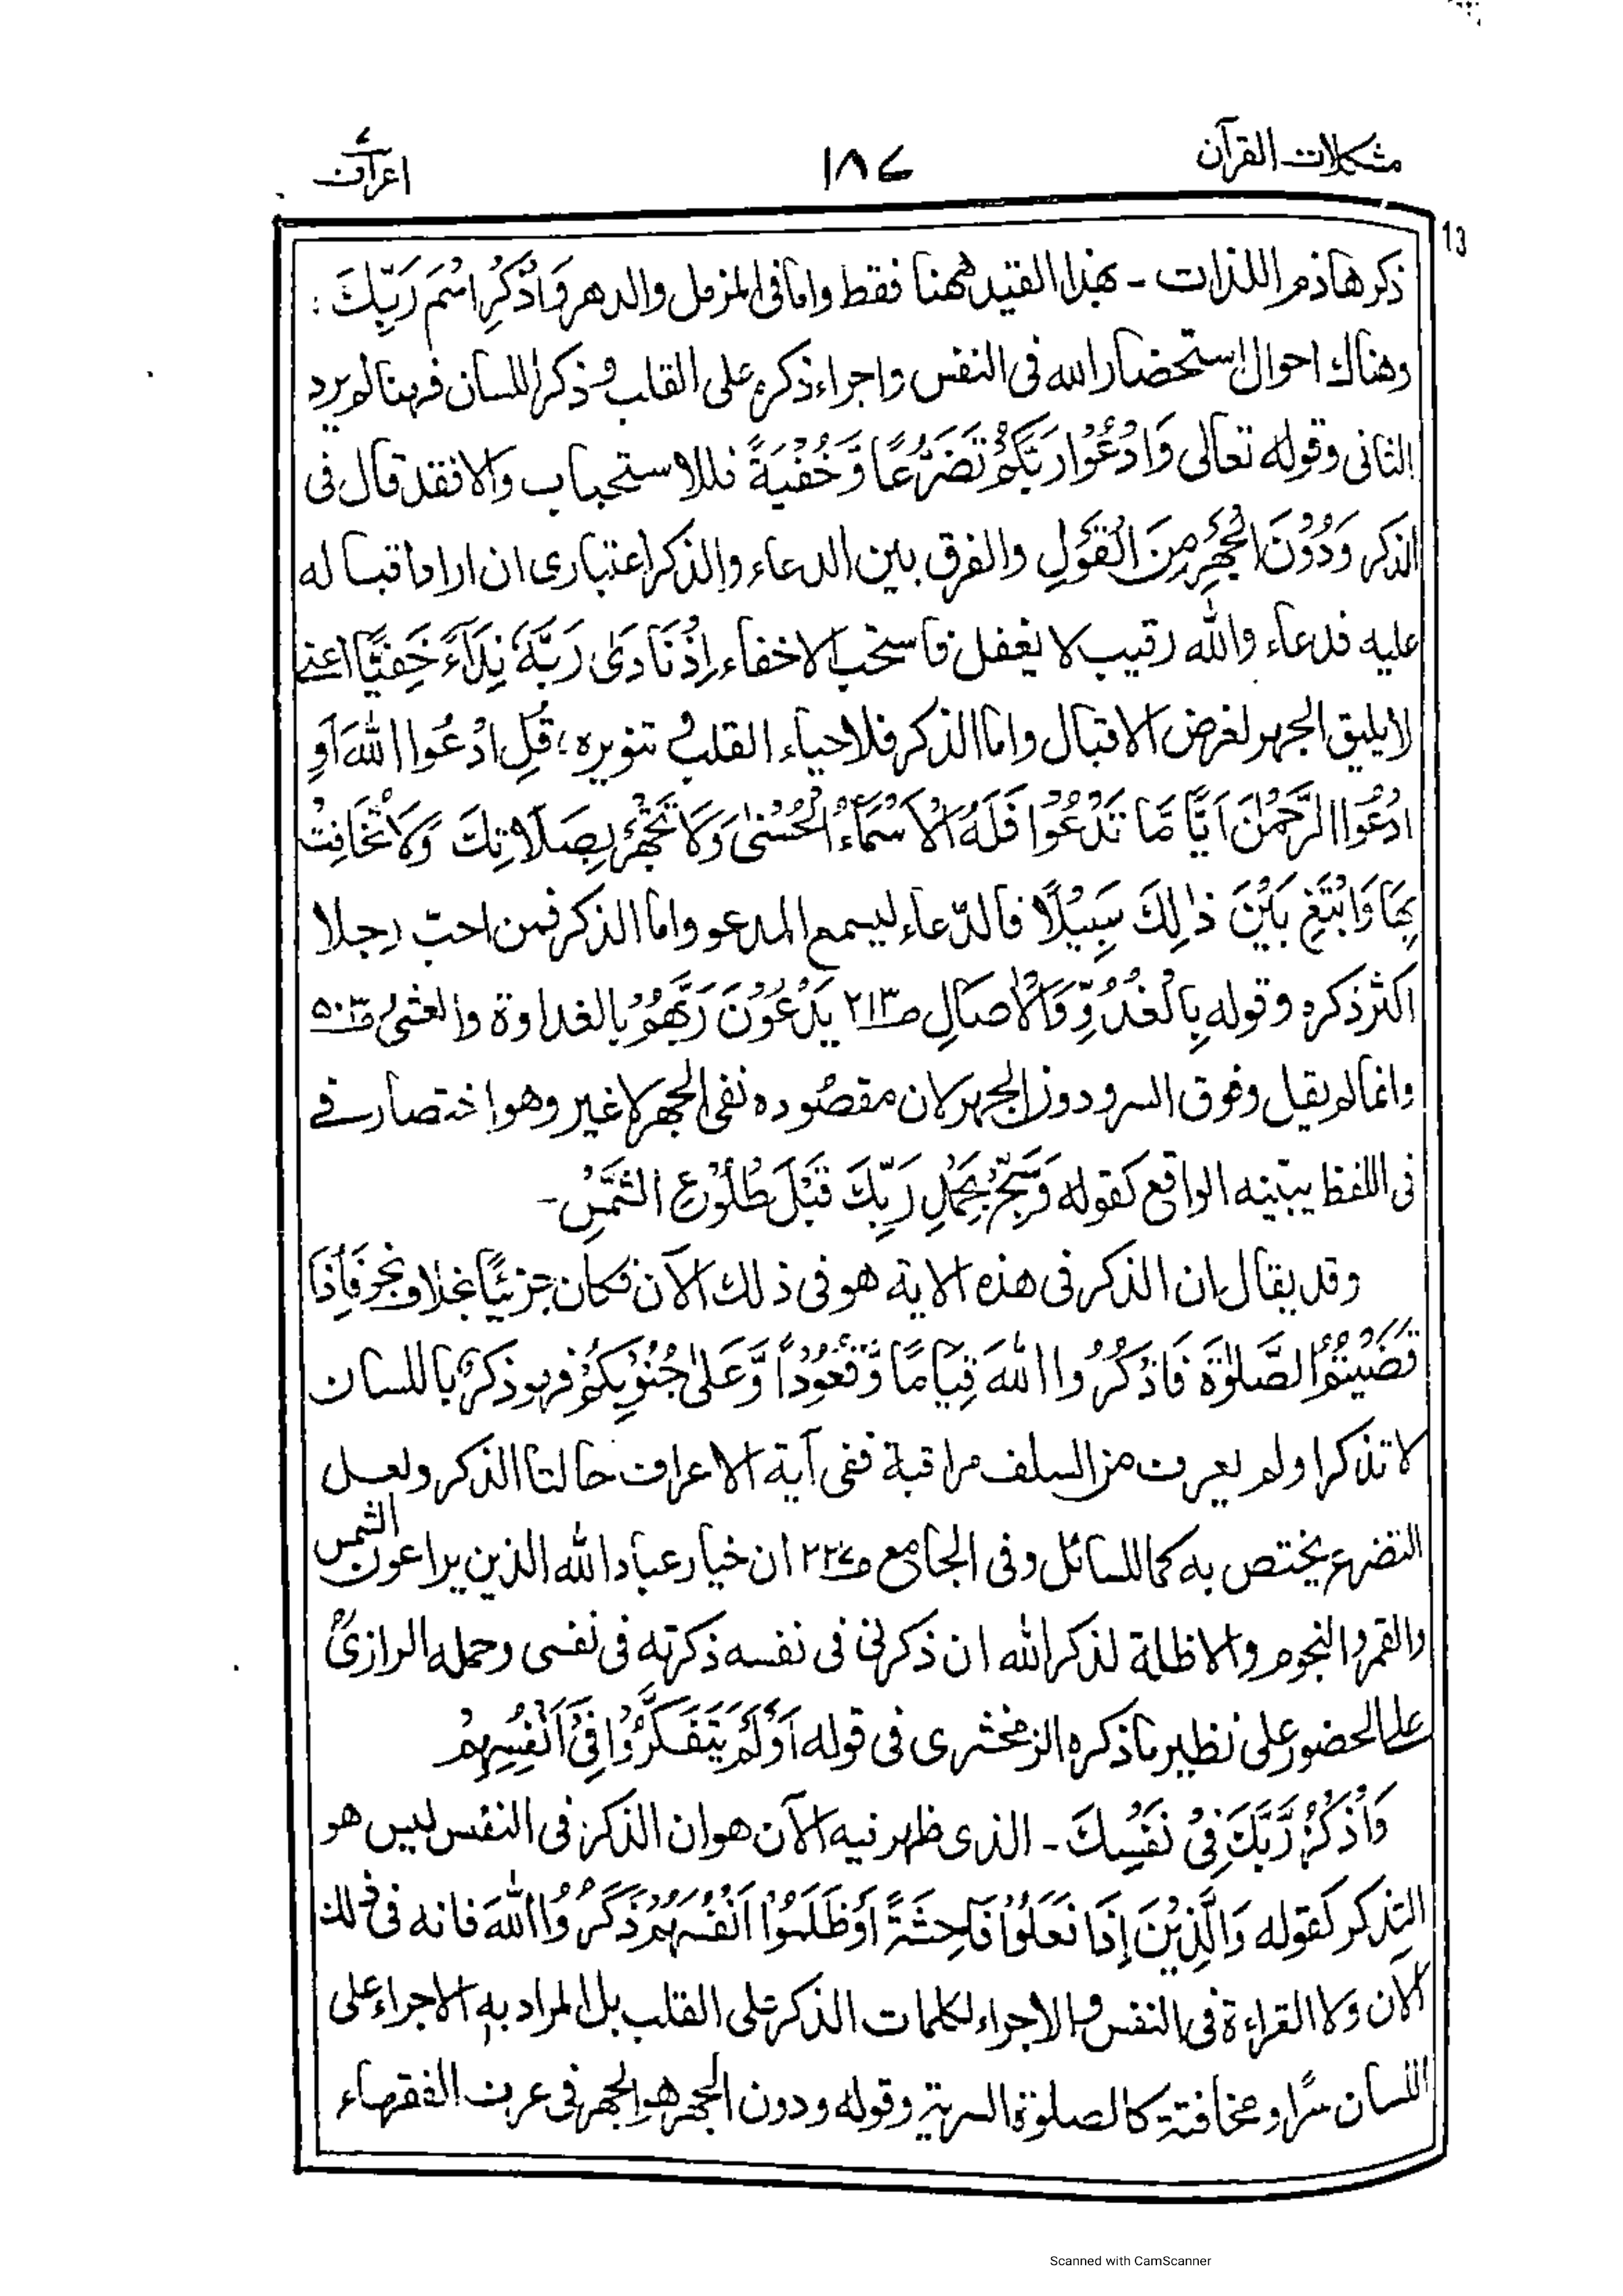 مشكلات القرآن
١٨٧
اعراف ٧
13
ذكر هاذم اللذات ـ بهذا القيد ههنا فقط واما فى المزمل والدهر وَاذْكُرِ اسْمَ رَبِّكَ :
وهناك احوال استحضار الله فى النفس واجراء ذكره على القلب و ذكر اللسان فهنا لم يرد
الثانى وقوله تعالى وَادْعُوْا رَبَّكُمْ تَضَرُّعًا وَّخُفْيَةً فللاستحباب والا فقد قال فى
الذكر وَدُوْنَ الْجَهْرِ مِنَ الْقَوْلِ والفرق بين الدعاء والذكر اعتبارى ان اراد اقباله
عليه فدعاء والله رقيب لا يغفل فاستحب الاخفاء اِذْ نَادٰى رَبَّهٗ نِدَآءً خَفِيًّا اعنے
لا يليق الجهر لغرض الاقبال واما الذكر فلاحياء القلب و تنويره ، قُلِ ادْعُوا اللّٰهَ اَوِ
ادْعُوا الرَّحْمٰنَ اَيًّا مَّا تَدْعُوْا فَلَهُ الْاَسْمَآءُ الْحُسْنٰى وَلَا تَجْهَرْ بِصَلَاتِكَ وَلَا تُخَافِتْ
بِهَا وَابْتَغِ بَيْنَ ذٰلِكَ سَبِيْلًا فالدّعاء ليسمع المدعو واما الذكر فمن احبّ رجلا
اكثر ذكره وقوله بِالْغُدُوِّ وَالْاٰصَالِ صـ٢١٣ يَدْعُوْنَ رَبَّهُمْ بالغداوة والعشى صـ٥٠٣
وانما لم يقل وفوق السر ودون الجهر لان مقصوده نفى الجهر لا غير وهو اختصار فے
فى اللفظ يبينه الواقع كقوله وَسَبِّحْ بِحَمْدِ رَبِّكَ قَبْلَ طُلُوْعِ الشَّمْسِ ـ
وقد يقال ان الذكر فى هذه الاية هو فى ذلك الآن فكان جزئيًّا بخلاف نحو فَاِذَا
قَضَيْتُمُ الصَّلٰوةَ فَاذْكُرُوا اللّٰهَ قِيَامًا وَّقُعُوْدًا وَّعَلٰى جُنُوْبِكُمْ فهو ذكر باللسان
لا تذكرا ولم يعرف من السلف مراقبة ففى آية الاعراف حالتا الذكر ولعل
التضرع يختص به كما للسائل وفى الجامع صـ٢٢٧ ان خيار عباد الله الذين يراعون الشمس
والقمر والنجوم والاظلة لذكر الله ان ذكرنى فى نفسه ذكرته فى نفسى وحمله الرازىؒ
على الحضور على نظير ما ذكره الزمخشرى فى قوله اَوَلَمْ يَتَفَكَّرُوْا فِىْ اَنْفُسِهِمْ
وَاذْكُرْ رَّبَّكَ فِىْ نَفْسِكَ ـ الذى ظهر فيه الآن هو ان الذكر فى النفس ليس هو
التذكر كقوله وَالَّذِيْنَ اِذَا فَعَلُوْا فَاحِشَةً اَوْ ظَلَمُوْا اَنْفُسَهُمْ ذَكَرُوا اللّٰهَ فانه فى ذلك
الآن ولا القراءة فى النفس والاجراء لكلمات الذكر على القلب بل المراد به الاجراء على
اللسان سًرا ومخافتة كالصلوة السرية وقوله ودون الجهر هو الجهر فى عرف الفقهاء
Scanned with CamScanner